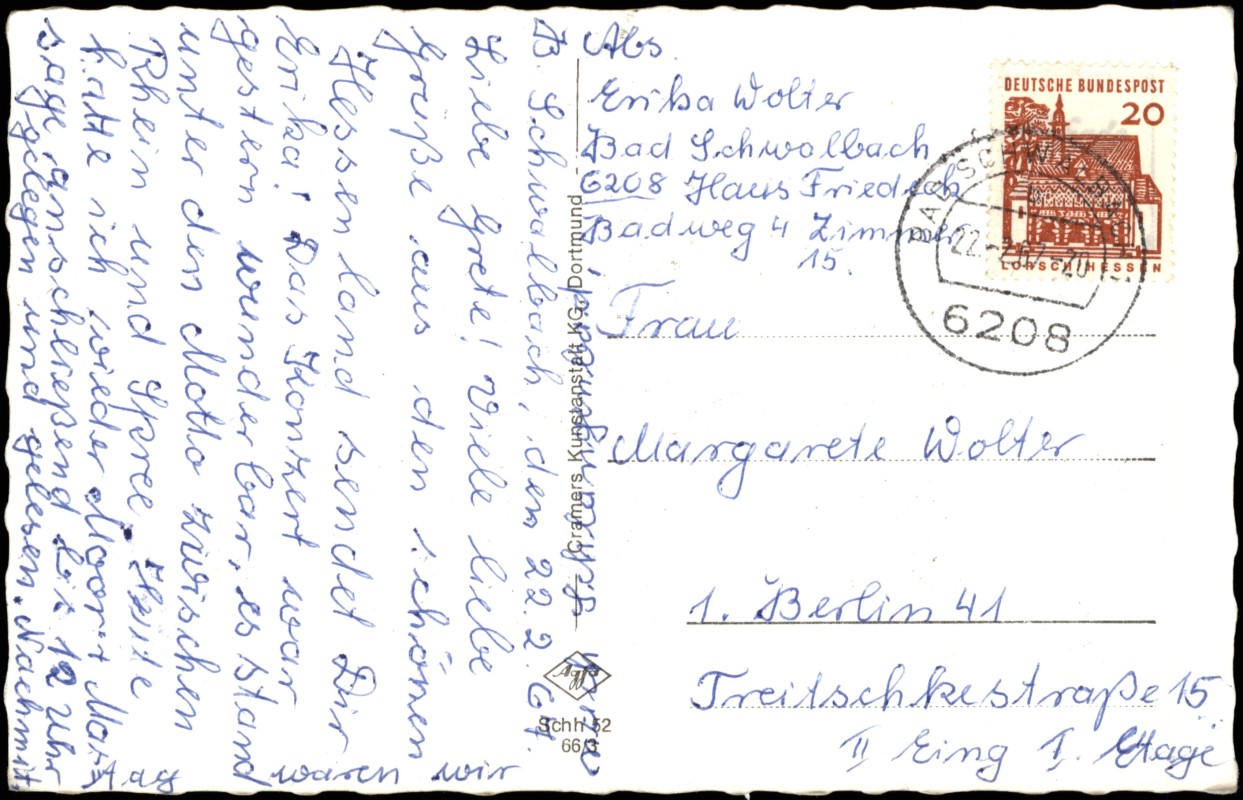 B. Schwalbach, den 22.2.67.
Liebe Grete! Viele liebe
Grüße aus den schönen
Hessenland sendet Dir
Erika! Das Konzert war
gestern wunderbar, es stand
unter den Motto zwischen
Rhein und Spree. Heute
hatte ich wieder Moor+Mas-
sage anschließend bis 12 Uhr
gelegen und gelesen. Nachmit-
tag waren wir
Abs.
Erika Wolter
Bad Schwalbach
6208 Haus Friedeck
Badweg 4 Zimmer
15.
Frau
Margarete Wolter
1. Berlin 41
Treitschkestraße 15
II Eing I. Etage
DEUTSCHE BUNDESPOST
20
LORSCH/HESSEN
BAD SCHWALBACH
22.-2.67-20
6208
Cramers Kunstanstalt KG, Dortmund
Agfa
Schh 52
66/3